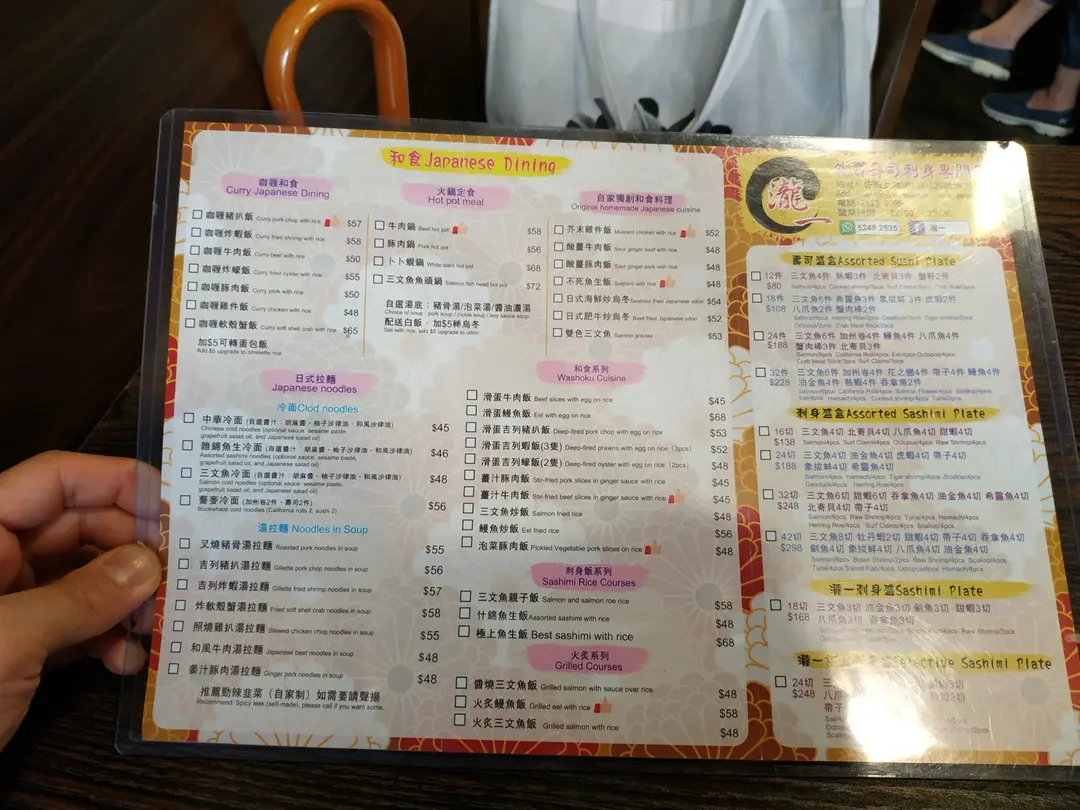 和食Japanese Dining
咖喱和食
Curry Japanese Dining
咖喱豬扒飯 Curry pork chop with rice $57
咖喱炸蝦飯 Curry fried shrimp with rice $58
咖喱牛肉飯 Curry beef with rice $50
咖喱炸蠔飯 Curry fried oyster with rice $55
咖喱豚肉飯 Curry pork with rice $50
咖喱雞件飯 Curry chicken with rice $48
咖喱軟殼蟹飯 Curry soft shell crab with rice $65
加$5可轉蛋包飯
Add $5 upgrade to omelette rice
火鍋定食
Hot pot meal
牛肉鍋 Beef hot pot $58
豚肉鍋 Pork hot pot $56
卜卜蜆鍋 White clam hot pot $68
三文魚魚頭鍋 Salmon fish head hot pot $72
自選湯底：豬骨湯/泡菜湯/醬油濃湯
Choice of soup : pork soup / pickle soup / soy sauce soup
配送白飯，加$5轉烏冬
Set with rice, add $5 upgrade to udon
自家獨創和食料理
Original homemade Japanese cuisine
芥末雞件飯 Mustard chicken with rice $52
酸薑牛肉飯 Sour ginger beef with rice $48
酸薑豚肉飯 Sour ginger pork with rice $48
不死魚生飯 Sashimi with rice $48
日式海鮮炒烏冬 Seafood fried Japanese udon $54
日式肥牛炒烏冬 Beef fried Japanese udon $52
雙色三文魚 Salmon gravlax $53
日式拉麵
Japanese noodles
冷面Clod noodles
中華冷面 (自選醬汁：胡麻醬、柚子沙律油、和風沙律油) $45
Chinese cold noodles (optional sauce: sesame paste,
grapefruit salad oil, and Japanese salad oil)
雜錦魚生冷面 (自選醬汁：胡麻醬、柚子沙律油、和風沙律油) $46
Assorted sashimi noodles (optional sauce: sesame paste,
grapefruit salad oil, and Japanese salad oil)
三文魚冷面 (自選醬汁：胡麻醬、柚子沙律油、和風沙律油) $48
Salmon cold noodles (optional sauce: sesame paste,
grapefruit salad oil, and Japanese salad oil)
蕎麥冷面 (加州卷2件，壽司2件) $56
Buckwheat cold noodles (California rolls 2, sushi 2)
湯拉麵 Noodles in Soup
叉燒豬骨湯拉麵 Roasted pork noodles in soup $55
吉列豬扒湯拉麵 Gillette pork chop noodles in soup $56
吉列炸蝦湯拉麵 Gillette fried shrimp noodles in soup $57
炸軟殼蟹湯拉麵 Fried soft shell crab noodles in soup $58
照燒雞扒湯拉麵 Stewed chicken chop noodles in soup $55
和風牛肉湯拉麵 Japanese beef noodles in soup $48
薑汁豚肉湯拉麵 Ginger pork noodles in soup $48
推薦勁辣韭菜（自家制）如需要請聲揚
Recommend: Spicy leek (self-made), please call if you want some.
和食系列
Washoku Cuisine
滑蛋牛肉飯 Beef slices with egg on rice $45
滑蛋鰻魚飯 Eel with egg on rice $68
滑蛋吉列豬扒飯 Deep-fired pork chop with egg on rice $53
滑蛋吉列蝦飯(3隻) Deep-fired prawns with egg on rice (3pcs) $52
滑蛋吉列蠔飯(2隻) Deep-fired oyster with egg on rice (2pcs) $48
薑汁豚肉飯 Stir-fried pork slices in ginger sauce with rice $45
薑汁牛肉飯 Stir-fried beef slices in ginger sauce with rice $45
三文魚炒飯 Salmon fried rice $48
鰻魚炒飯 Eel fried rice $56
泡菜豚肉飯 Pickled Vegetable pork slices on rice $48
刺身飯系列
Sashimi Rice Courses
三文魚親子飯 Salmon and salmon roe rice $58
什錦魚生飯 Assorted sashimi with rice $48
極上魚生飯 Best sashimi with rice $68
火炙系列
Grilled Courses
醬燒三文魚飯 Grilled salmon with sauce over rice $48
火炙鰻魚飯 Grilled eel with rice $58
火炙三文魚飯 Grilled salmon with rice $48
瀧一
外賣壽司刺身專門
5249 2535
瀧一
壽司盛盒Assorted Sushi Plate
12件 三文魚4件 熟蝦3件 北寄貝3件 蟹籽2件
$80
18件 三文魚6件 希靈魚3件 象拔蚌3件 虎蝦2件
$108 八爪魚2件 蟹肉棒2件
24件 三文魚6件 加州卷4件 鰻魚4件 八爪魚4件
$188 蟹肉棒3件 北寄貝3件
32件 三文魚6件 加州卷4件 花之戀4件 帶子4件 鰻魚4件
$228 油金魚4件 熟蝦4件 吞拿魚2件
刺身盛盒Assorted Sashimi Plate
16切 三文魚4切 北寄貝4切 八爪魚4切 甜蝦4切
$138 Salmon/4pcs Surf Clam/4pcs Octopus/4pcs Raw Shrimp/4pcs
24切 三文魚4切 油金魚4切 虎蝦4切 帶子4切
$188 象拔蚌4切 希靈魚4切
32切 三文魚6切 甜蝦6切 吞拿魚4切 油金魚4切 希靈魚4切
$248 北寄貝4切 帶子4切
42切 三文魚8切 牡丹蝦2切 甜蝦4切 帶子4切 吞拿魚4切
$298 劍魚4切 象拔蚌4切 八爪魚4切 油金魚4切
瀧一刺身盛Sashimi Plate
18切 三文魚3切 油金魚3切 劍魚3切 甜蝦3切
$168 八爪魚3切 吞拿魚3切
Selective Sashimi Plate
24切
$248 八爪
帶子